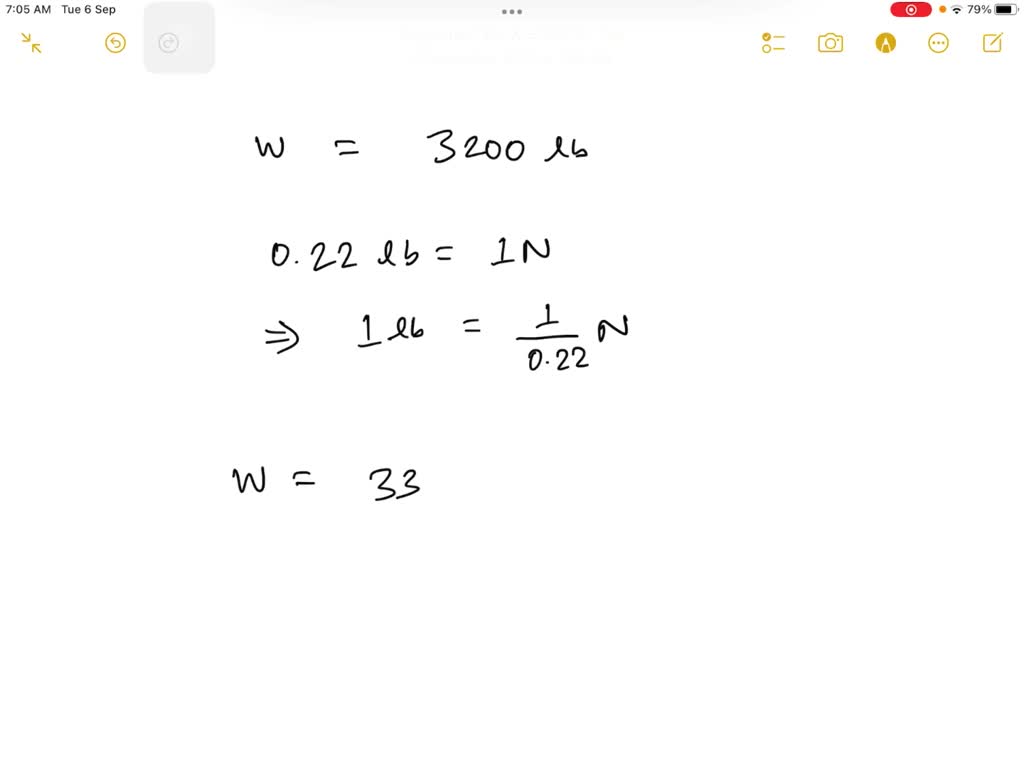 7:05 AM Tue 6 Sep 79%
W = 3200 lb
0.22 lb = 1N
⇒ 1 lb = 1/0.22 N
W = 33